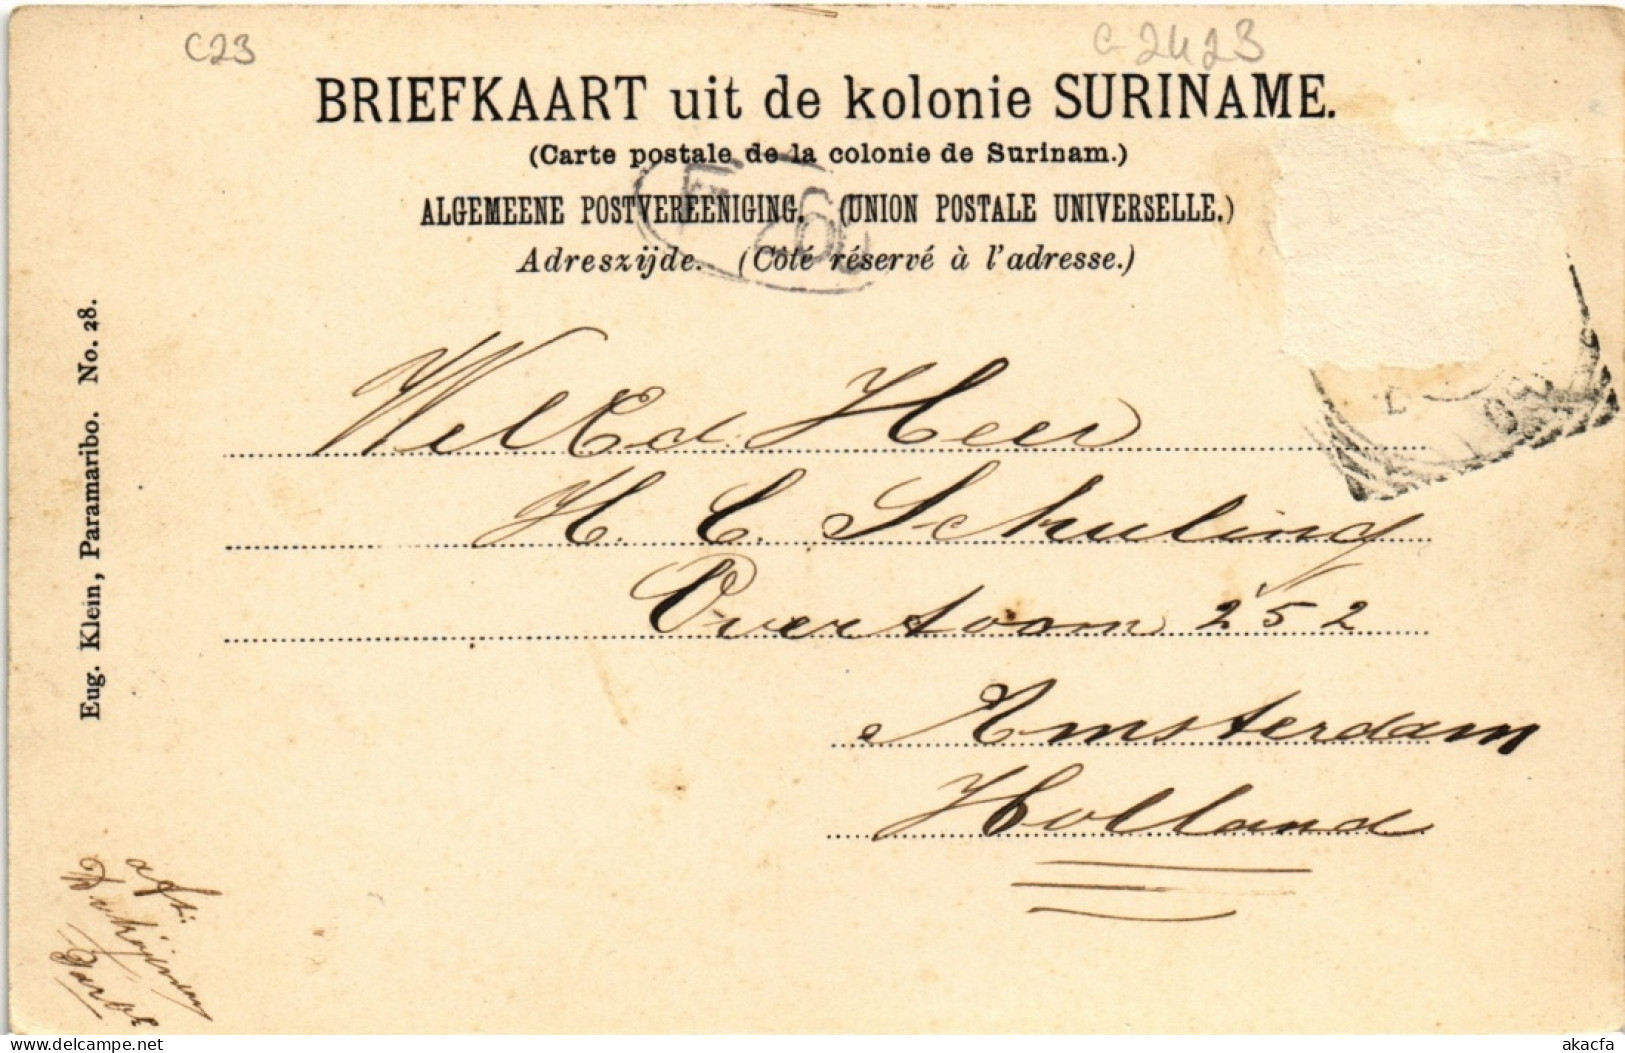 C23
C 2423
BRIEFKAART uit de kolonie SURINAME.
(Carte postale de la colonie de Surinam.)
ALGEMEENE POSTVEREENIGING. (UNION POSTALE UNIVERSELLE.)
Adreszijde. (Côté réservé à l'adresse.)
Eug. Klein, Paramaribo. No. 28.
WelEd. Heer
H. C. Schuling
Overtoom 252
Amsterdam
Holland
afz:
akacfa
delcampe.net